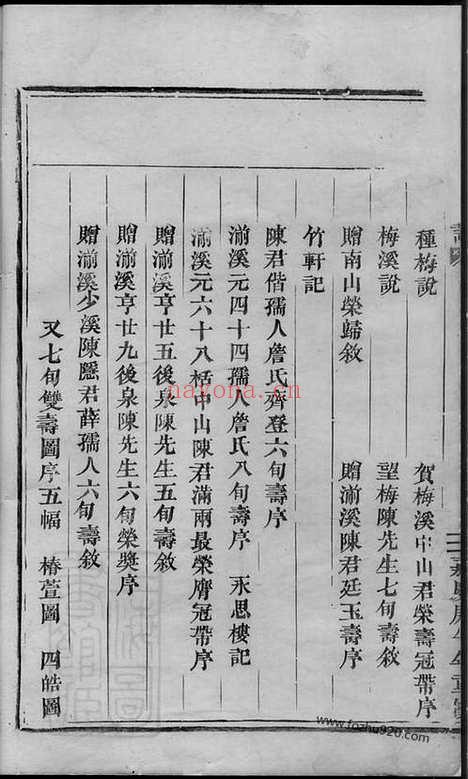 種梅說 賀梅溪中山君榮壽冠帶序
梅溪說 望梅陳先生七旬壽敘
贈南山榮歸敘 贈湔溪陳君廷玉壽序
竹軒記
陳君偕孺人詹氏齊登六旬壽序
湔溪元四十四孺人詹氏八旬壽序 永思樓記
湔溪元六十八栝中山陳君滿兩最榮膺冠帶序
贈湔溪亨廿五後泉陳先生五旬壽敘
贈湔溪亨廿九後泉陳先生六旬榮獎序
贈湔溪少溪陳隱君薛孺人六旬壽敘
又七旬雙壽圖序五幅 椿萱圖 四皓圖
nayona.cn
www.fozhu920.com